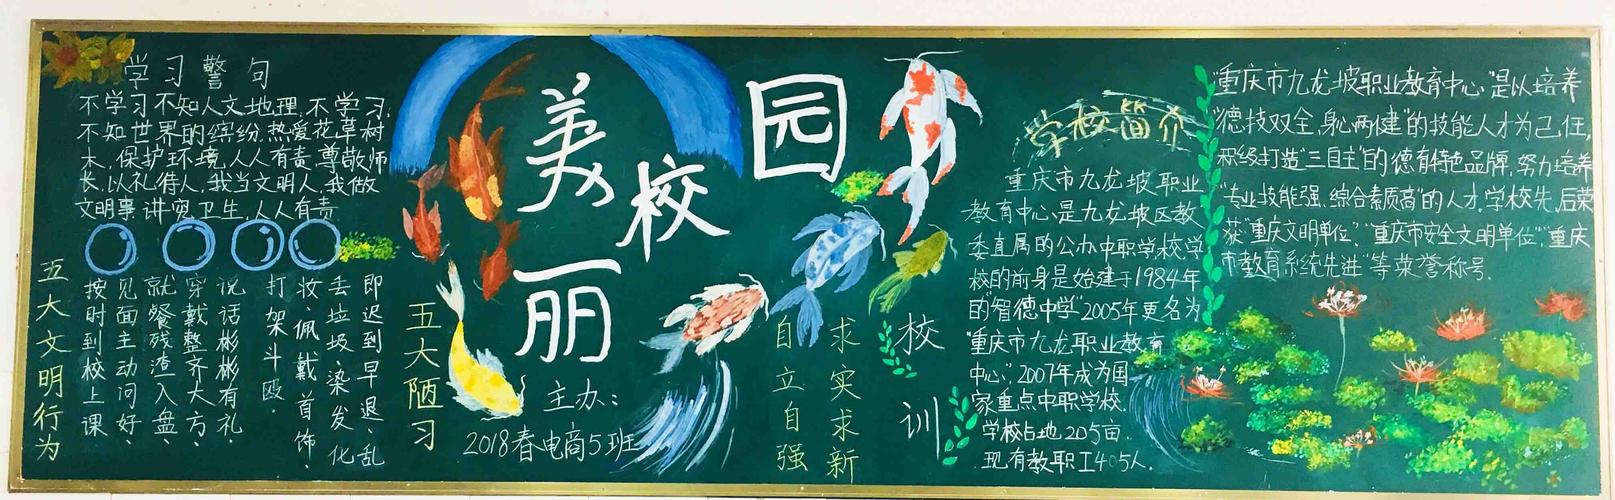 学习警句
不学习不知人文地理,不学习,
不知世界的缤纷.热爱花草树
木,保护环境,人人有责.尊敬师
长.以礼待人.我当文明人.我做
文明事讲究卫生,人人有责
五大文明行为
按时到校上课
见面主动问好、
就餐残渣入盘、
穿戴整齐大方、
说话彬彬有礼.
打架斗殴.
妆、佩戴首饰、
丢垃圾、染发、化
即迟到早退、乱
五大陋习
美丽校园
主办:
2018春电商5班
自立自强
求实求新
校训
学校简介
重庆市九龙坡职业
教育中心是九龙坡区教
委直属的公办中职学校.学
校的前身是始建于1984年
的"智德中学"2005年更名为
"重庆市九龙职业教育
中心",2007年成为国
家重点中职学校.
学校占地205亩.
现有教职工405人.
"重庆市九龙坡职业教育中心"是以培养
"德技双全,身心两健"的技能人才为己任,
积极打造"三自主"的德育特色品牌.努力培养
"专业技能强.综合素质高"的人才.学校先后荣
获"重庆文明单位"."重庆市安全文明单位"."重庆
市教育系统先进"等荣誉称号.